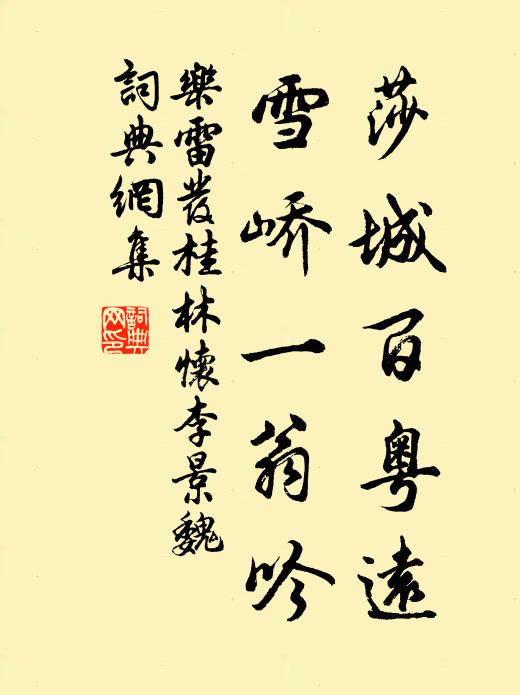 莎城百粵遠
雪嶠一翁吟
樂雷發桂林懷李景魏
詞典網集
詞典
网印